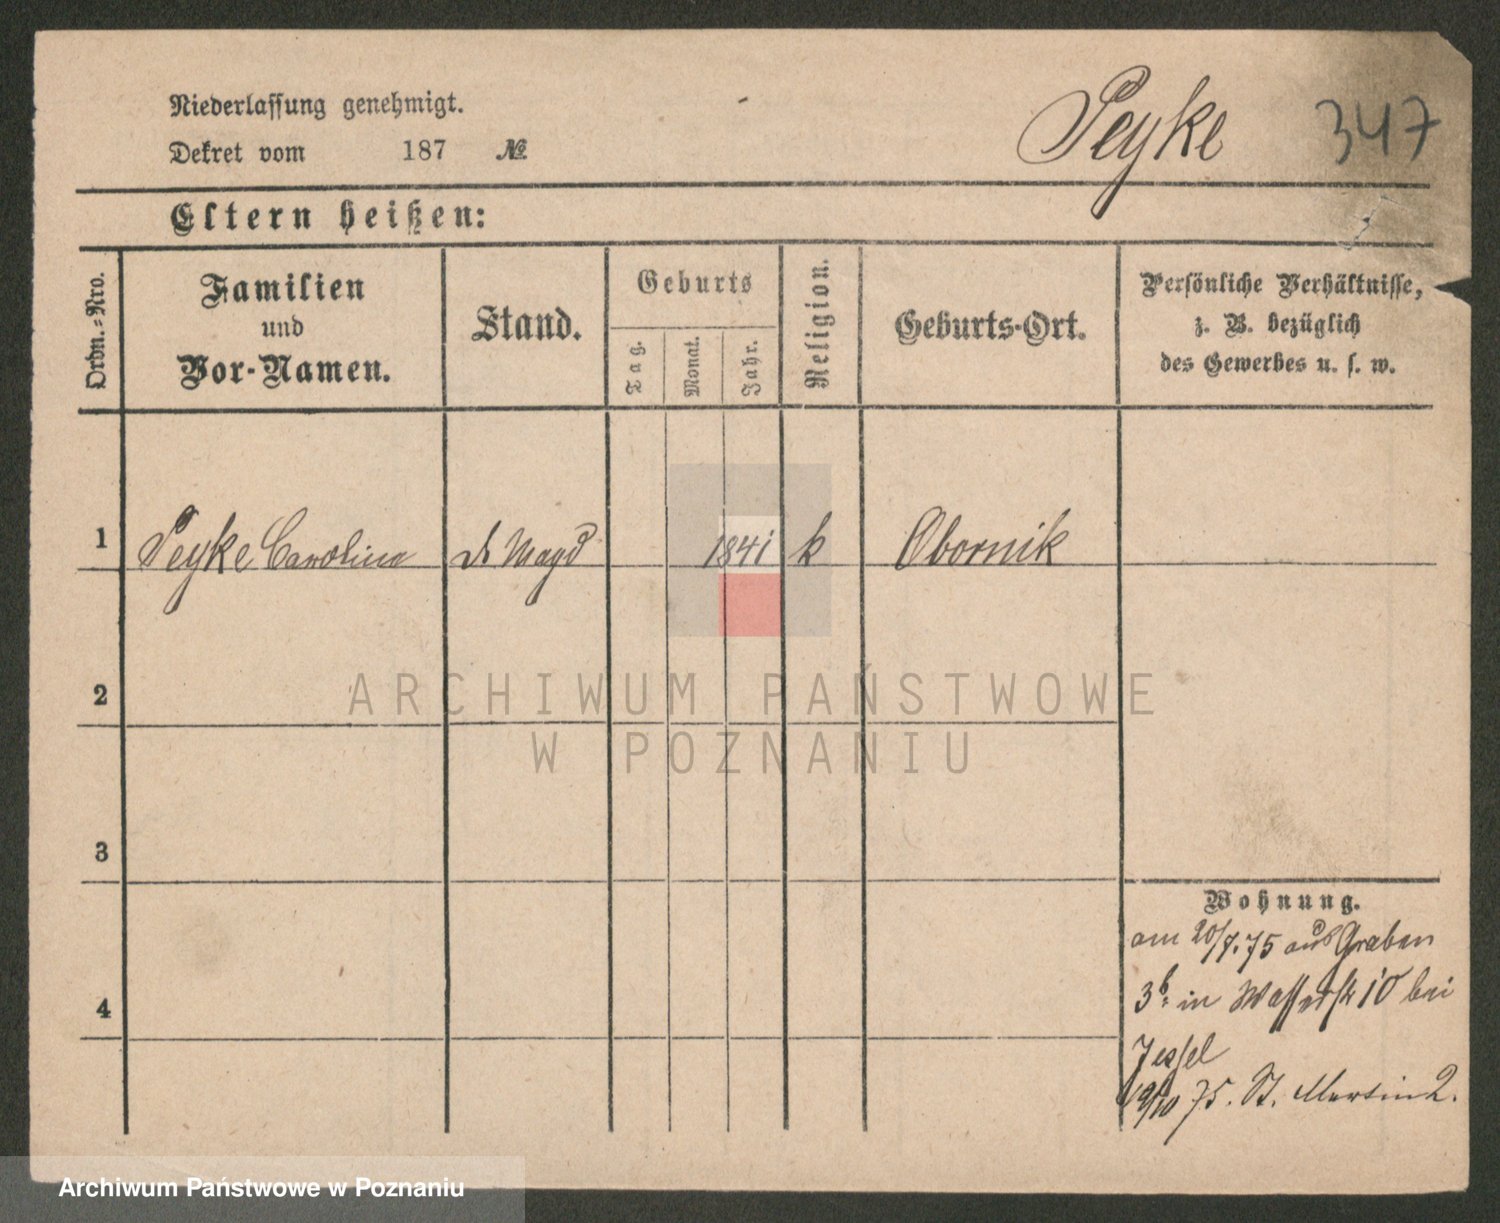 Niederlassung genehmigt.
Dekret vom 187 №
Peyke 347
Eltern heißen:
Ordn.-Nro.
Familien
und
Vor-Namen.
Stand.
Geburts
Tag.
Monat.
Jahr.
Religion.
Geburts-Ort.
Persönliche Verhältnisse,
z. B. bezüglich
des Gewerbes u. s. w.
1 Peyke Carolina Magd 1841 k Obornik
2
ARCHIWUM PAŃSTWOWE
W POZNANIU
3
Wohnung.
am 20/7.75 aus Graben
3b in Wasserstr 10 bei
Jessel
19/10 75. St. Martin 2.
4
Archiwum Państwowe w Poznaniu